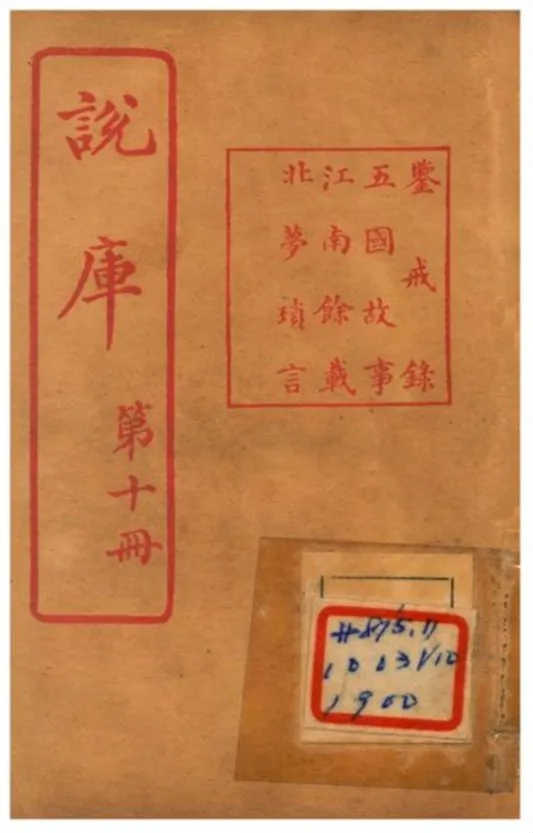 說庫
第十冊
鑒戒錄
五國故事
江南餘載
北夢瑣言
#875.11
1003V10
1900